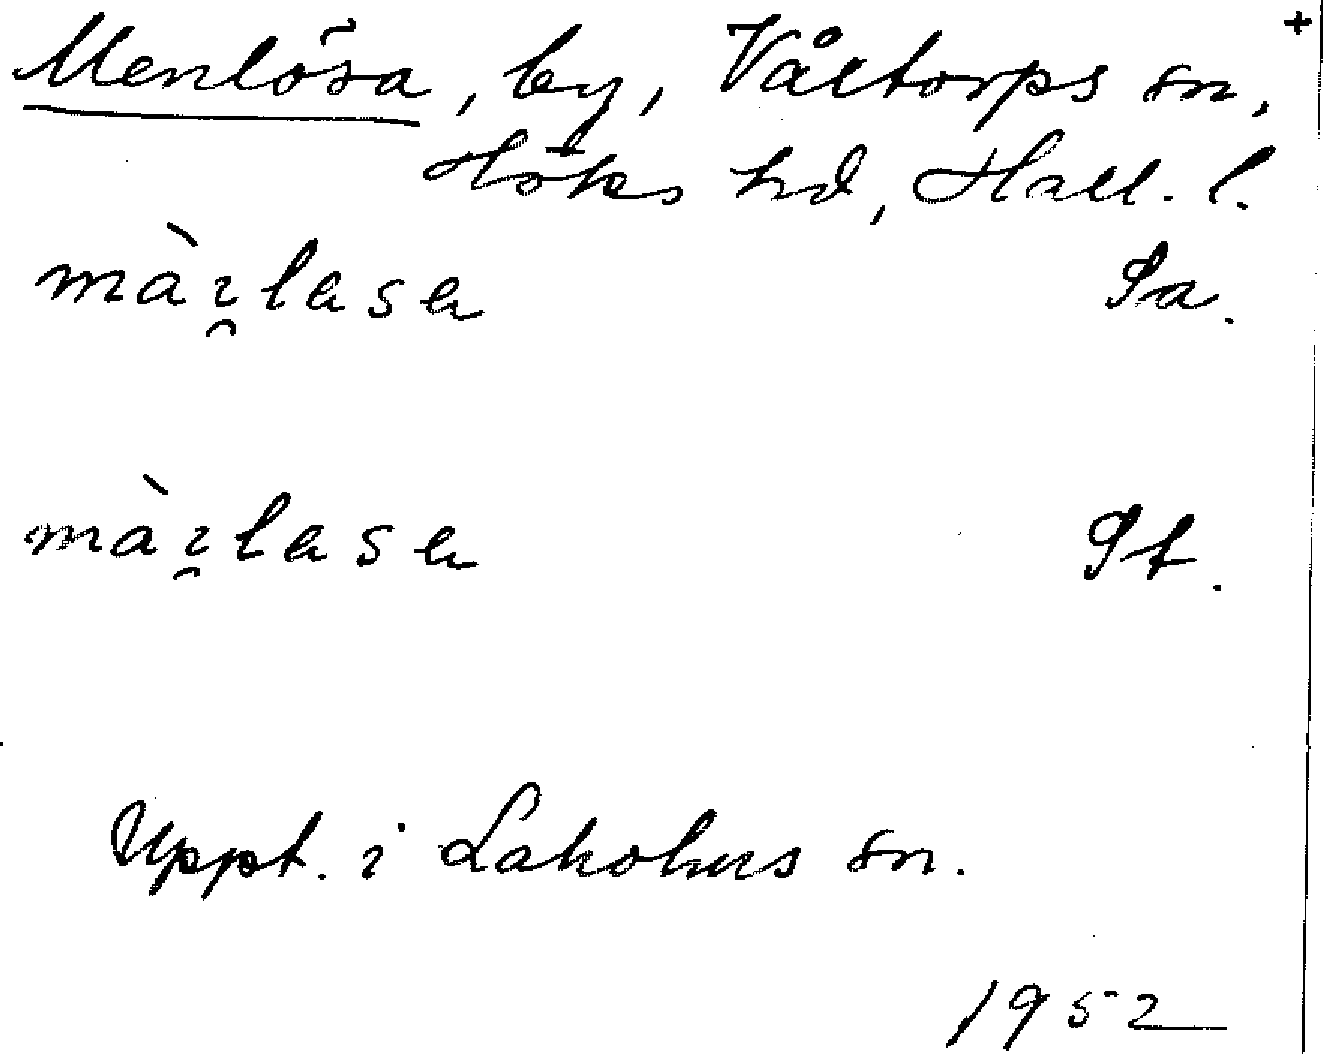 Menlösa, by, Våxtorps sn, +
Höks hd, Hall. l.
màɿ̯lasa Pa.
màɿ̯lasa Pt.
Uppt. i Laholms sn.
1952